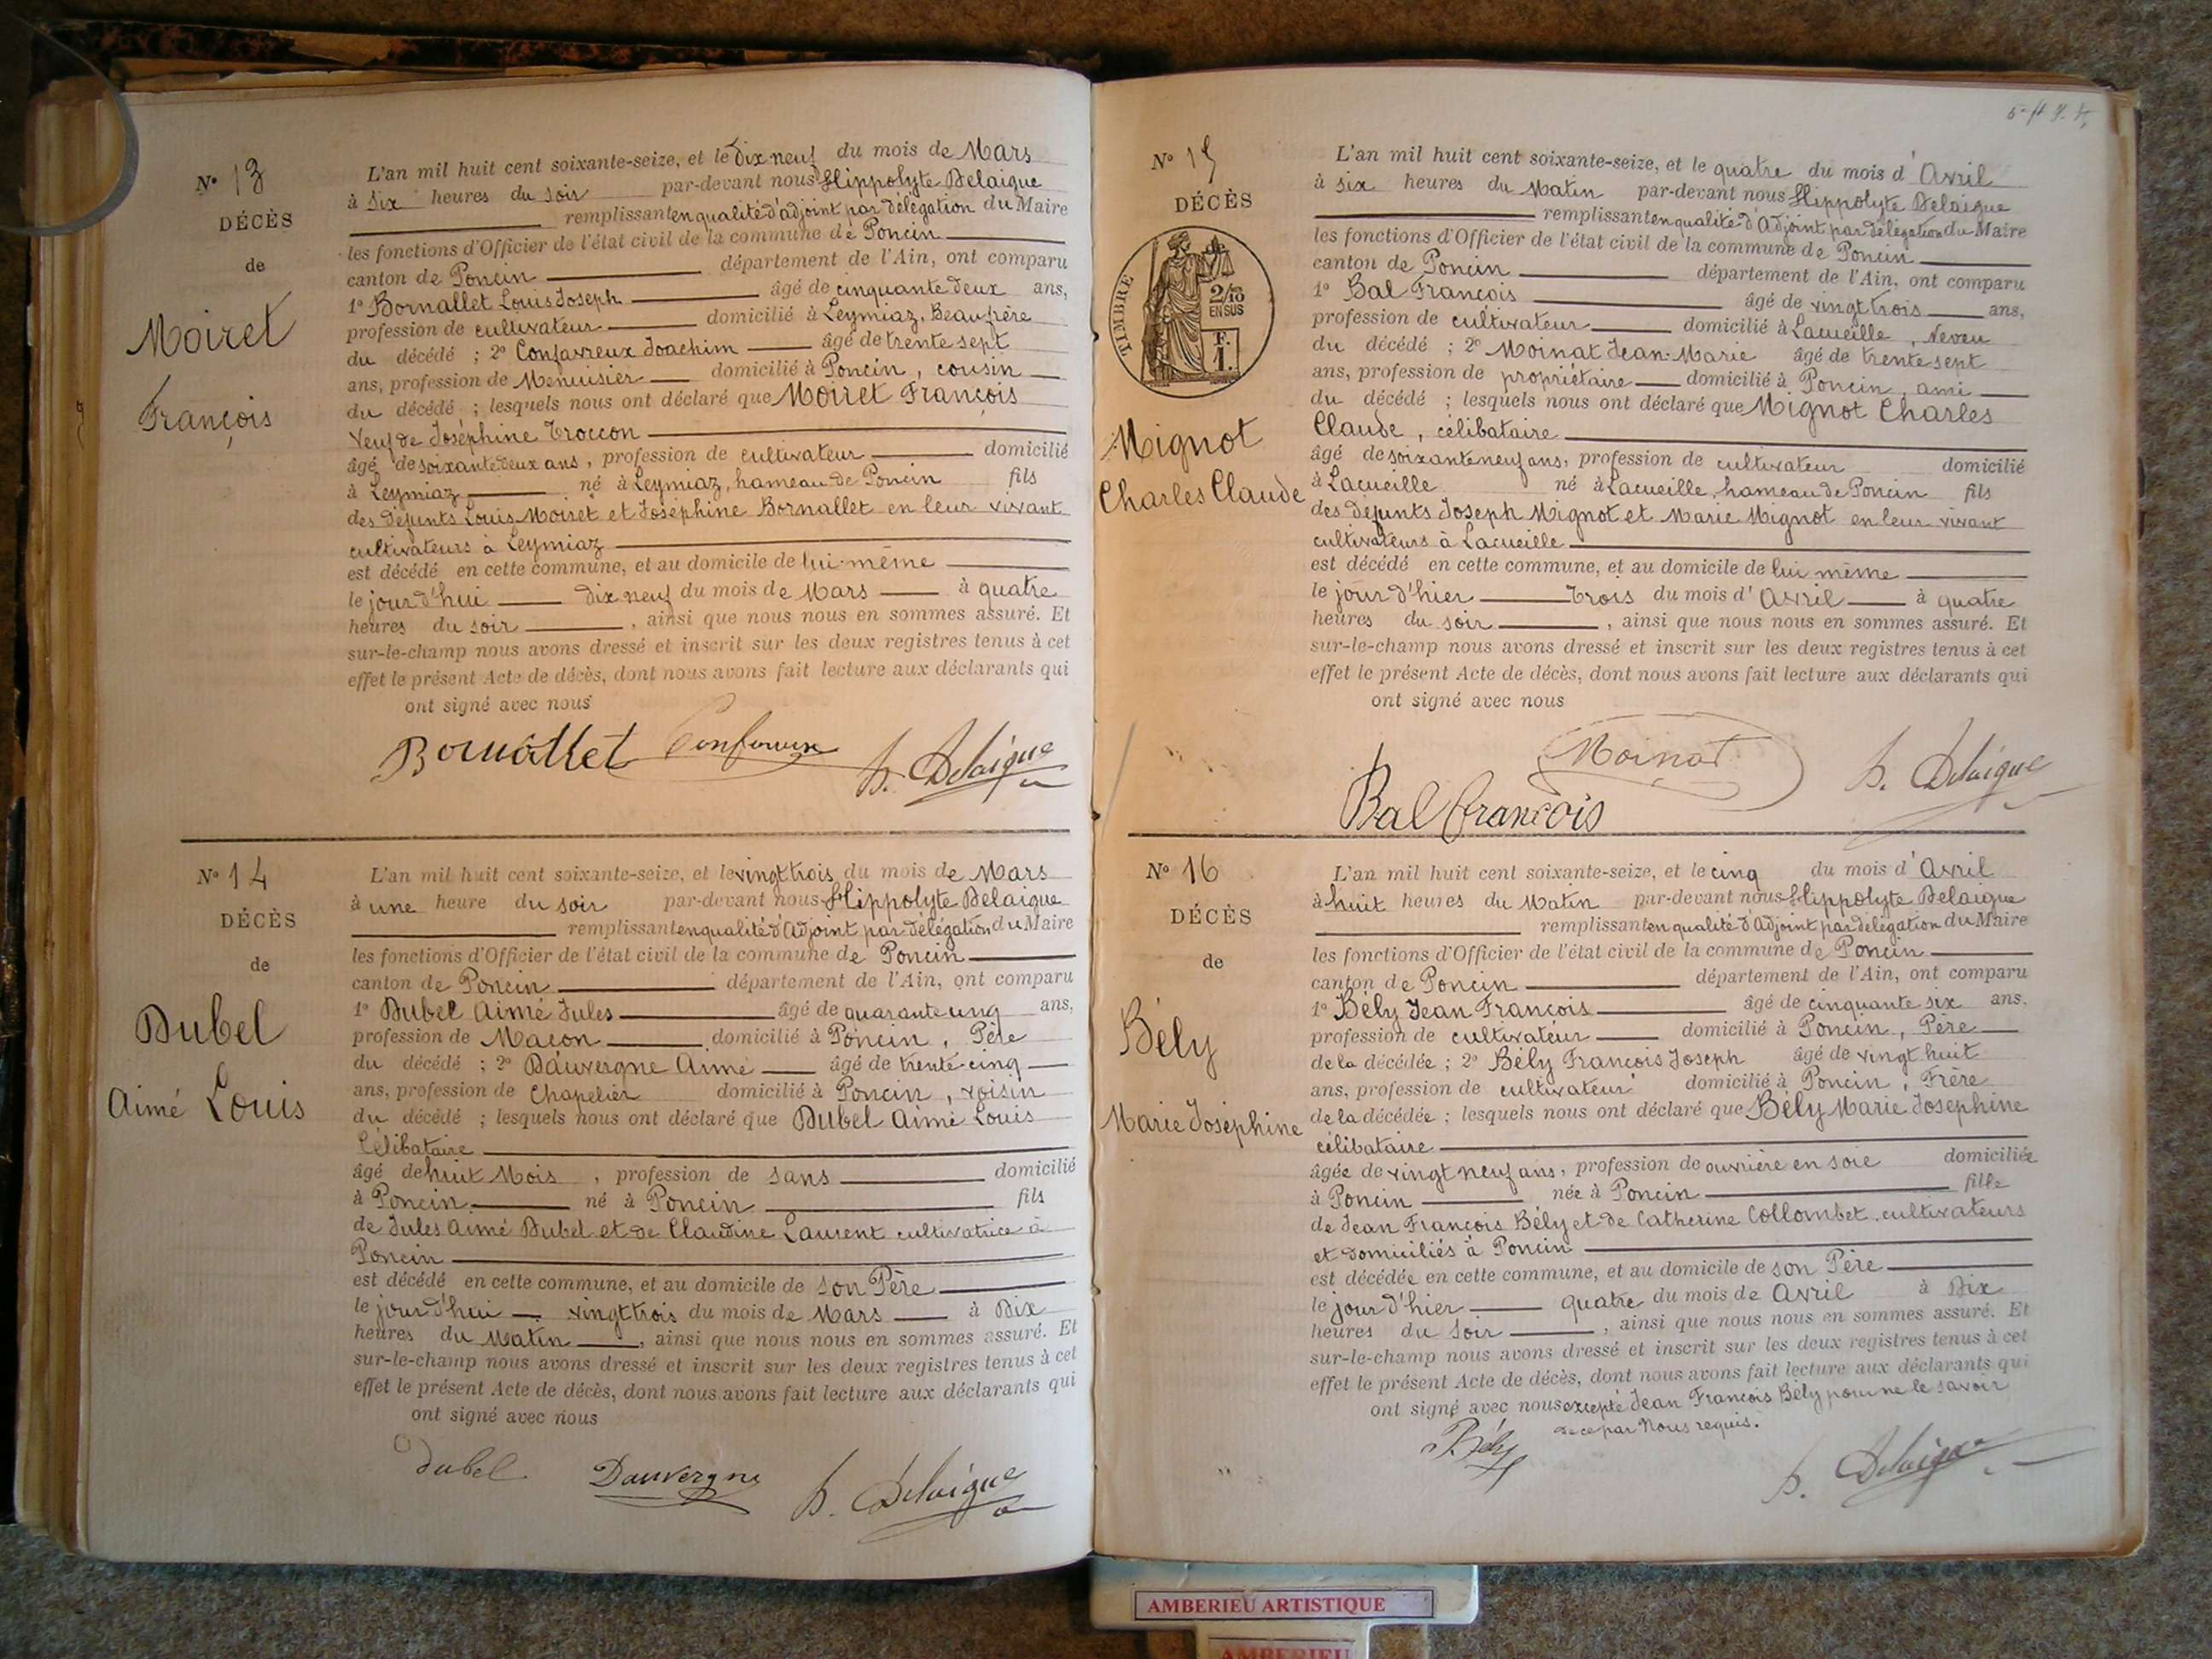 N° 13
DÉCÈS
de
Moiret
François
L'an mil huit cent soixante-seize, et le dix neuf du mois de Mars
à six heures du soir par-devant nous Hippolyte Delaigue
remplissant en qualité d'adjoint par délégation du Maire
les fonctions d'Officier de l'état civil de la commune de Poncin
canton de Poncin département de l'Ain, ont comparu
1° Bornallet Louis Joseph âgé de cinquante deux ans,
profession de cultivateur domicilié à Leymiaz, Beaufrère
du décédé ; 2° Confavreux Joachim âgé de trente sept
ans, profession de Menuisier domicilié à Poncin, cousin
du décédé ; lesquels nous ont déclaré que Moiret François
Veuf de Joséphine Troccon
âgé de soixante deux ans, profession de cultivateur domicilié
à Leymiaz né à Leymiaz, hameau de Poncin fils
des défunts Louis Moiret et Joséphine Bornallet en leur vivant
cultivateurs à Leymiaz
est décédé en cette commune, et au domicile de lui-même
le jour d'hui dix neuf du mois de Mars à quatre
heures du soir, ainsi que nous nous en sommes assuré. Et
sur-le-champ nous avons dressé et inscrit sur les deux registres tenus à cet
effet le présent Acte de décès, dont nous avons fait lecture aux déclarants qui
ont signé avec nous
Bornallet Confavreux h. Delaigue
N° 14
DÉCÈS
de
Dubel
Aimé Louis
L'an mil huit cent soixante-seize, et le vingt trois du mois de Mars
à une heure du soir par-devant nous Hippolyte Delaigue
remplissant en qualité d'Adjoint par délégation du Maire
les fonctions d'Officier de l'état civil de la commune de Poncin
canton de Poncin département de l'Ain, ont comparu
1° Dubel Aimé Jules âgé de quarante cinq ans,
profession de Maçon domicilié à Poncin, Père
du décédé ; 2° Dauvergne Aimé âgé de trente-cinq
ans, profession de Chapelier domicilié à Poncin, voisin
du décédé ; lesquels nous ont déclaré que Dubel Aimé Louis
Célibataire
âgé de huit Mois, profession de sans domicilié
à Poncin né à Poncin fils
de Jules Aimé Dubel et de Claudine Laurent cultivatrice à
Poncin
est décédé en cette commune, et au domicile de son Père
le jour d'hui vingt trois du mois de Mars à Dix
heures du Matin, ainsi que nous nous en sommes assuré. Et
sur-le-champ nous avons dressé et inscrit sur les deux registres tenus à cet
effet le présent Acte de décès, dont nous avons fait lecture aux déclarants qui
ont signé avec nous
Dubel Dauvergne h. Delaigue
N° 15
DÉCÈS
TIMBRE
2/10
EN SUS
F.
1.
Mignot
Charles Claude
L'an mil huit cent soixante-seize, et le quatre du mois d'Avril
à six heures du Matin par-devant nous Hippolyte Delaigue
remplissant en qualité d'Adjoint par délégation du Maire
les fonctions d'Officier de l'état civil de la commune de Poncin
canton de Poncin département de l'Ain, ont comparu
1° Bal François âgé de vingt trois ans,
profession de cultivateur domicilié à Lacueille, Neveu
du décédé ; 2° Moinat Jean-Marie âgé de trente sept
ans, profession de propriétaire domicilié à Poncin, ami
du décédé ; lesquels nous ont déclaré que Mignot Charles
Claude, célibataire
âgé de soixante neuf ans, profession de cultivateur domicilié
à Lacueille né à Lacueille, hameau de Poncin fils
des défunts Joseph Mignot et Marie Mignot en leur vivant
cultivateurs à Lacueille
est décédé en cette commune, et au domicile de lui même
le jour d'hier Trois du mois d'Avril à quatre
heures du soir, ainsi que nous nous en sommes assuré. Et
sur-le-champ nous avons dressé et inscrit sur les deux registres tenus à cet
effet le présent Acte de décès, dont nous avons fait lecture aux déclarants qui
ont signé avec nous
Moinat h. Delaigue
Bal francois
N° 16
DÉCÈS
de
Bély
Marie Joséphine
L'an mil huit cent soixante-seize, et le cinq du mois d'Avril
à huit heures du Matin par-devant nous Hippolyte Delaigue
remplissant en qualité d'Adjoint par délégation du Maire
les fonctions d'Officier de l'état civil de la commune de Poncin
canton de Poncin département de l'Ain, ont comparu
1° Bély Jean François âgé de cinquante six ans,
profession de cultivateur domicilié à Poncin, Père
de la décédée ; 2° Bély François Joseph âgé de vingt huit
ans, profession de cultivateur domicilié à Poncin, Frère
de la décédée ; lesquels nous ont déclaré que Bély Marie Joséphine
célibataire
âgée de vingt neuf ans, profession de ouvrière en soie domiciliée
à Poncin née à Poncin fille
de Jean François Bély et de Catherine Collombet, cultivateurs
et domiciliés à Poncin
est décédée en cette commune, et au domicile de son Père
le jour d'hier quatre du mois de Avril à Dix
heures du soir, ainsi que nous nous en sommes assuré. Et
sur-le-champ nous avons dressé et inscrit sur les deux registres tenus à cet
effet le présent Acte de décès, dont nous avons fait lecture aux déclarants qui
ont signé avec nous excepté Jean François Bély pour ne le savoir
de ce par Nous requis.
Bély h. Delaigue
AMBERIEU ARTISTIQUE
AMBERIEU